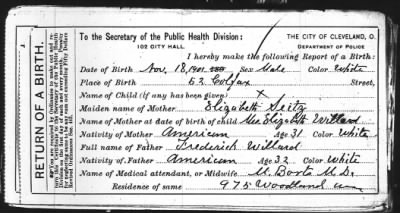 To the Secretary of the Public Health Division:
102 CITY HALL.
THE CITY OF CLEVELAND, O.
DEPARTMENT OF POLICE
I hereby make the following Report of a Birth:
Date of Birth Nov. 18, 1901 Sex Male Color White
Place of Birth 53 Colfax Street,
Name of Child (if any has been given) X
Maiden name of Mother Elizabeth Seitz
Name of Mother at date of birth of child Mrs Elizabeth Willard
Nativity of Mother American Age 31 Color White
Full name of Father Frederick Willard
Nativity of Father American Age 32 Color White
Name of Medical attendant, or Midwife M. Bosto M.D.
Residence of same 975 Woodland
RETURN OF A BIRTH.